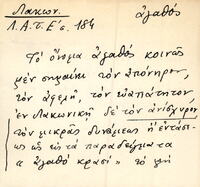 Λακων. ἀγαθός
Λ.Α.Τ.Ε´ς. 184
Τὸ ὄνομα ἀγαθὸς κοινῶς
μὲν σημαίνει τὸν ἀπόνηρον,
τὸν ἀφελῆ, τὸν εὐαπάτητον
ἐν Λακωνικῇ δὲ τὸν ἀνίσχυρον
τὸν μικρᾶς δυνάμεως ἢ ἐντάσε-
ως ὡς εἰς τὰ παραδείγματα
« ἀγαθὸ κρασὶ » τὸ μὴ